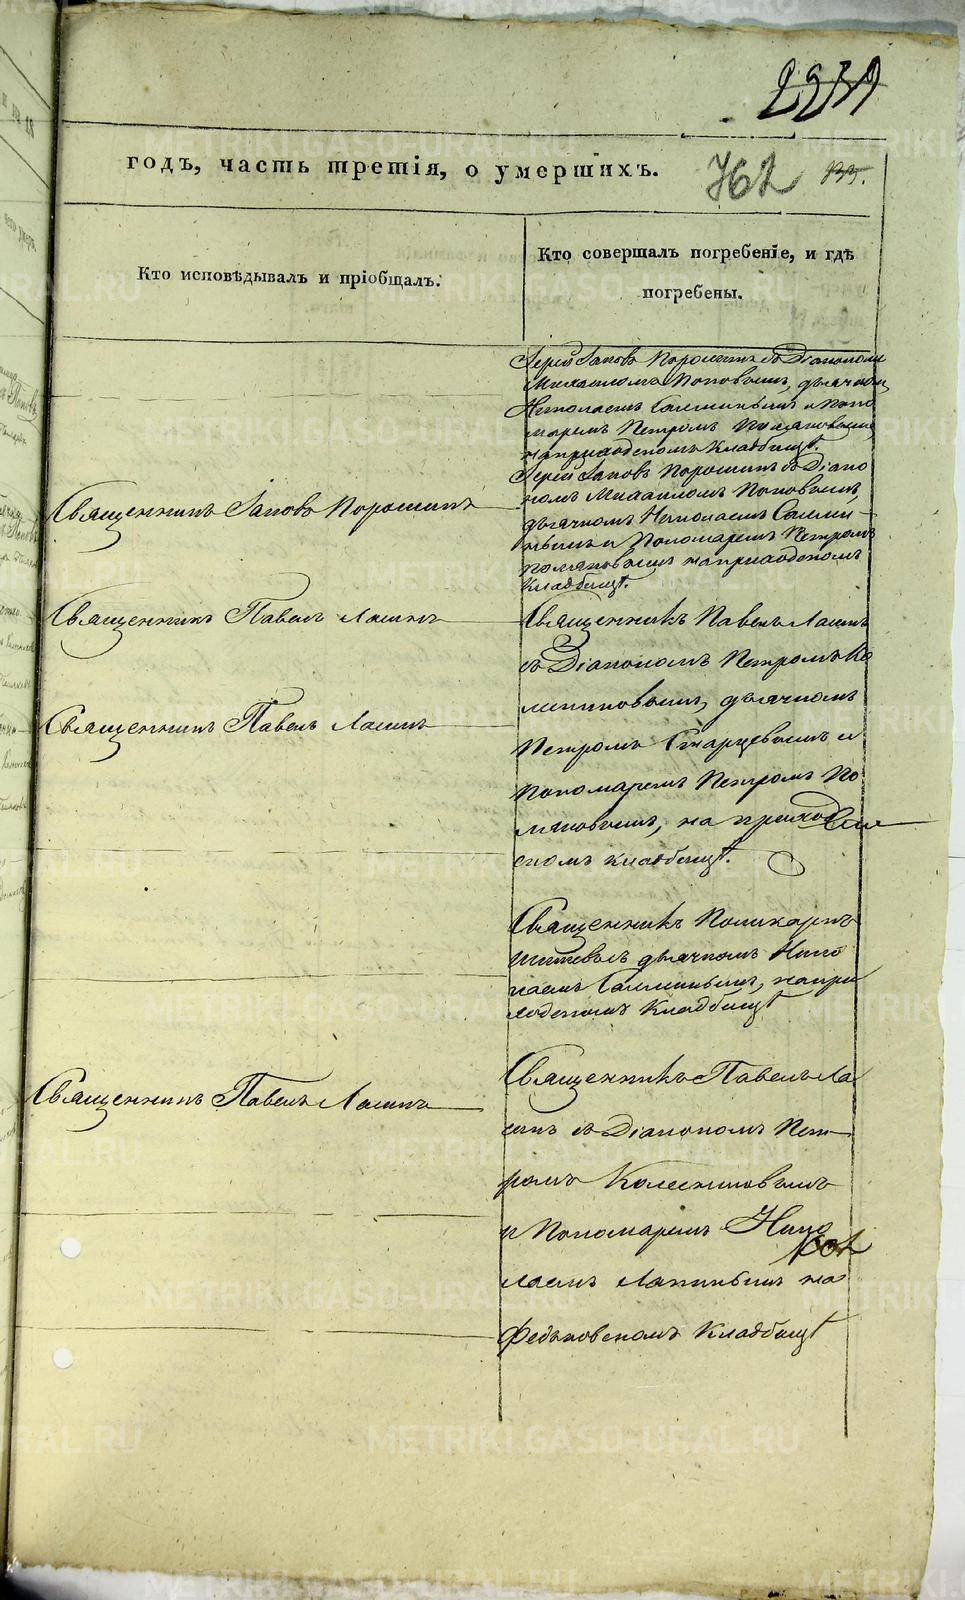 годъ, часть третія, о умершихъ.
762
Кто исповѣдывалъ и пріобщалъ.
Кто совершалъ погребеніе, и гдѣ
погребены.
Іерей Іаковъ Порошинъ съ Діакономъ
Михаиломъ Поповымъ, дьячкомъ
Николаемъ и Поно
маремъ Петромъ
на приходскомъ кладбищѣ.
Іерей Іаковъ Порошинъ съ Діако
номъ Михаиломъ Поповымъ,
дьячкомъ Николаемъ
и Пономаремъ Петромъ
на приходскомъ
кладбищѣ.
Священникъ Іаковъ Порошинъ
Священникъ Павелъ Ласинъ
Священникъ Павелъ Ласинъ
съ Діакономъ Петромъ
дьячкомъ
Петромъ Старцевымъ и
Пономаремъ Петромъ По
на приход
скомъ кладбищѣ.
Священникъ Павелъ Ласинъ
Священникъ Поликарпъ
дьячкомъ Нико
лаемъ на при
ходскомъ Кладбищѣ
Священникъ Павелъ Ласинъ
Священникъ Павелъ Ла
синъ съ Діакономъ Пет
ромъ Колесниковымъ
и Пономаремъ Нико
лаемъ Лапинымъ на
Федьковскомъ Кладбищѣ
METRIKI.GASO-URAL.RU